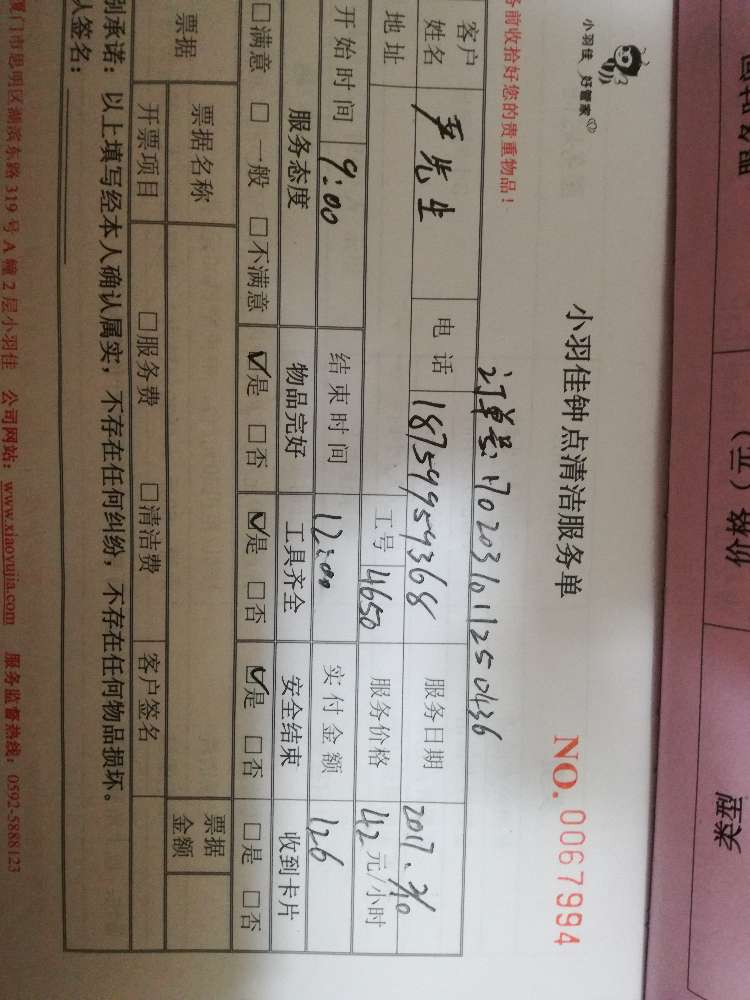 小羽佳 好管家
小羽佳钟点清洁服务单
NO.0067994
务前收拾好您的贵重物品！
订单号 1702031011250436
客户姓名 先生 电话 18759959368 服务日期 2017.
地址 工号 4650 服务价格 42 元/小时
开始时间 9:00 结束时间 12:00 实付金额 126
服务态度 物品完好 工具齐全 安全结束 收到卡片
□满意 □一般 □不满意 ☑是 □否 ☑是 □否 ☑是 □否 □是 □否
票据 票据名称 票据金额
开票项目 □服务费 □清洁费 客户签名
别承诺：以上填写经本人确认属实，不存在任何纠纷，不存在任何物品损坏。
人签名：
厦门市思明区湖滨东路 319 号 A 幢 2 层小羽佳 公司网站：www.xiaoyujia.com 服务监督热线：0592-5888123